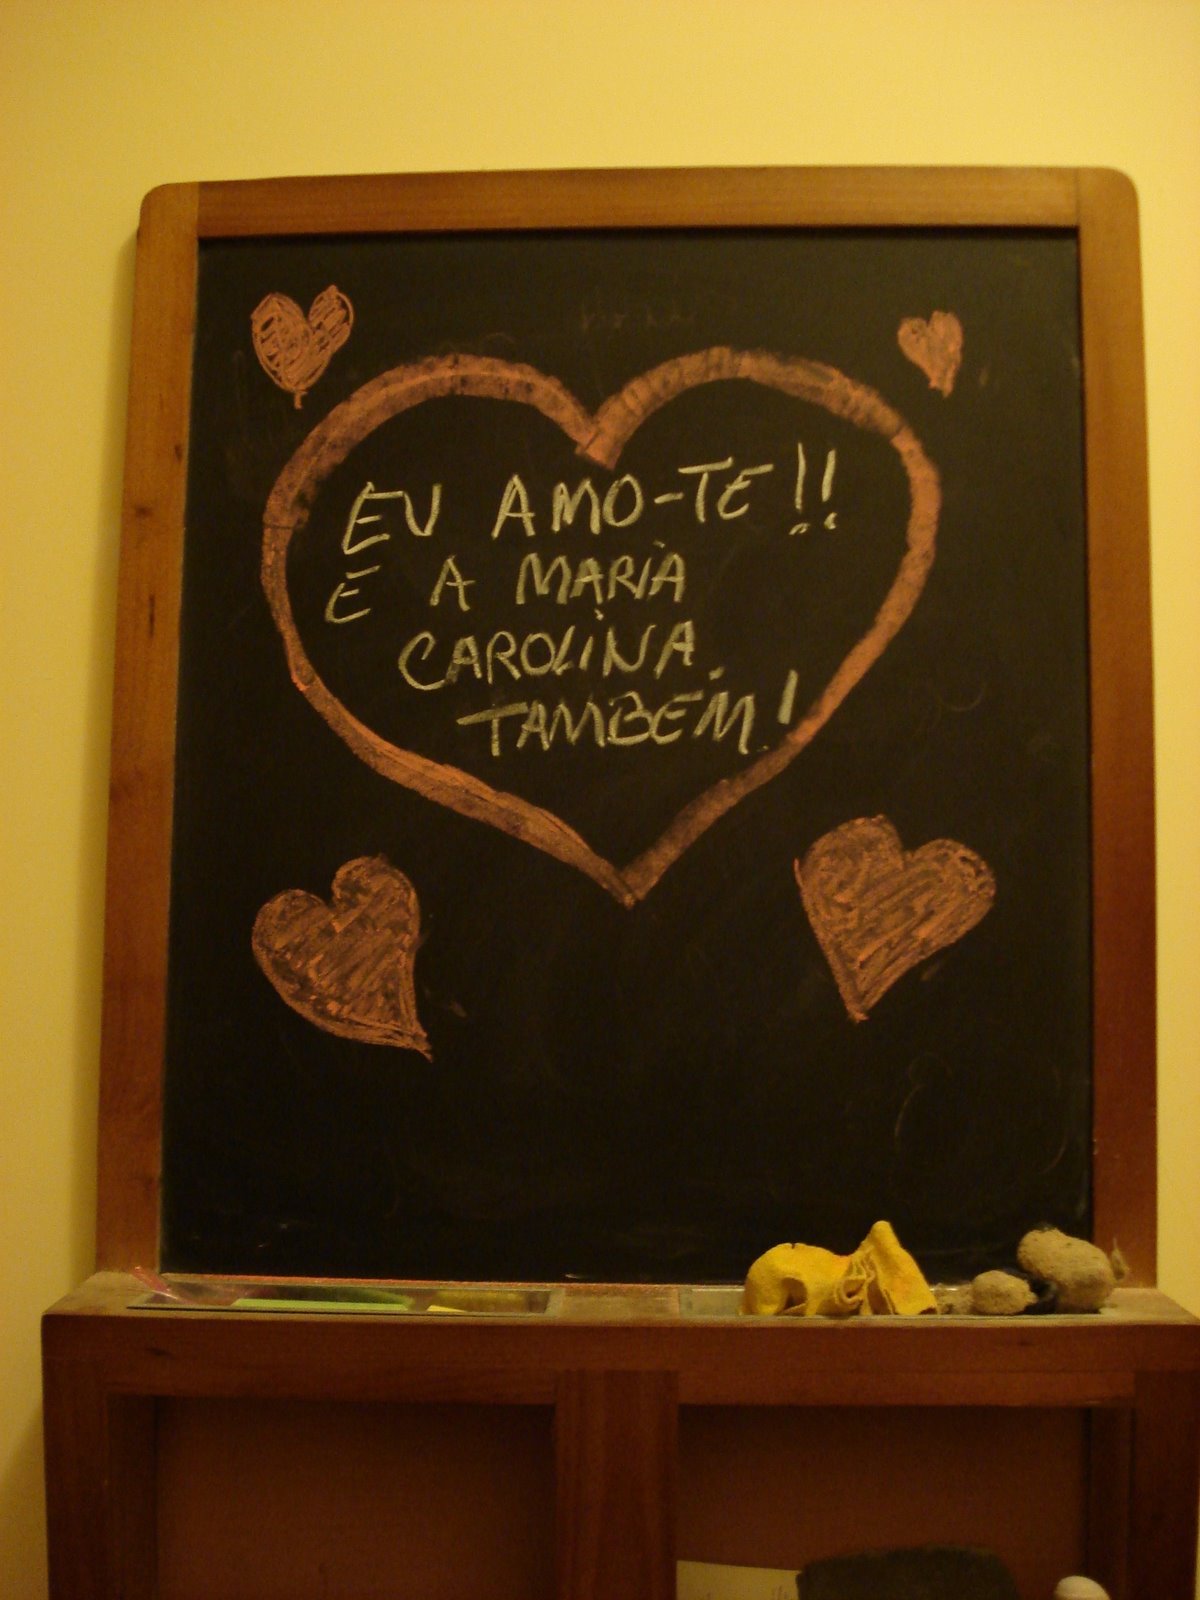 EU AMO-TE!!
E A MARIA
CAROLINA
TAMBÉM!